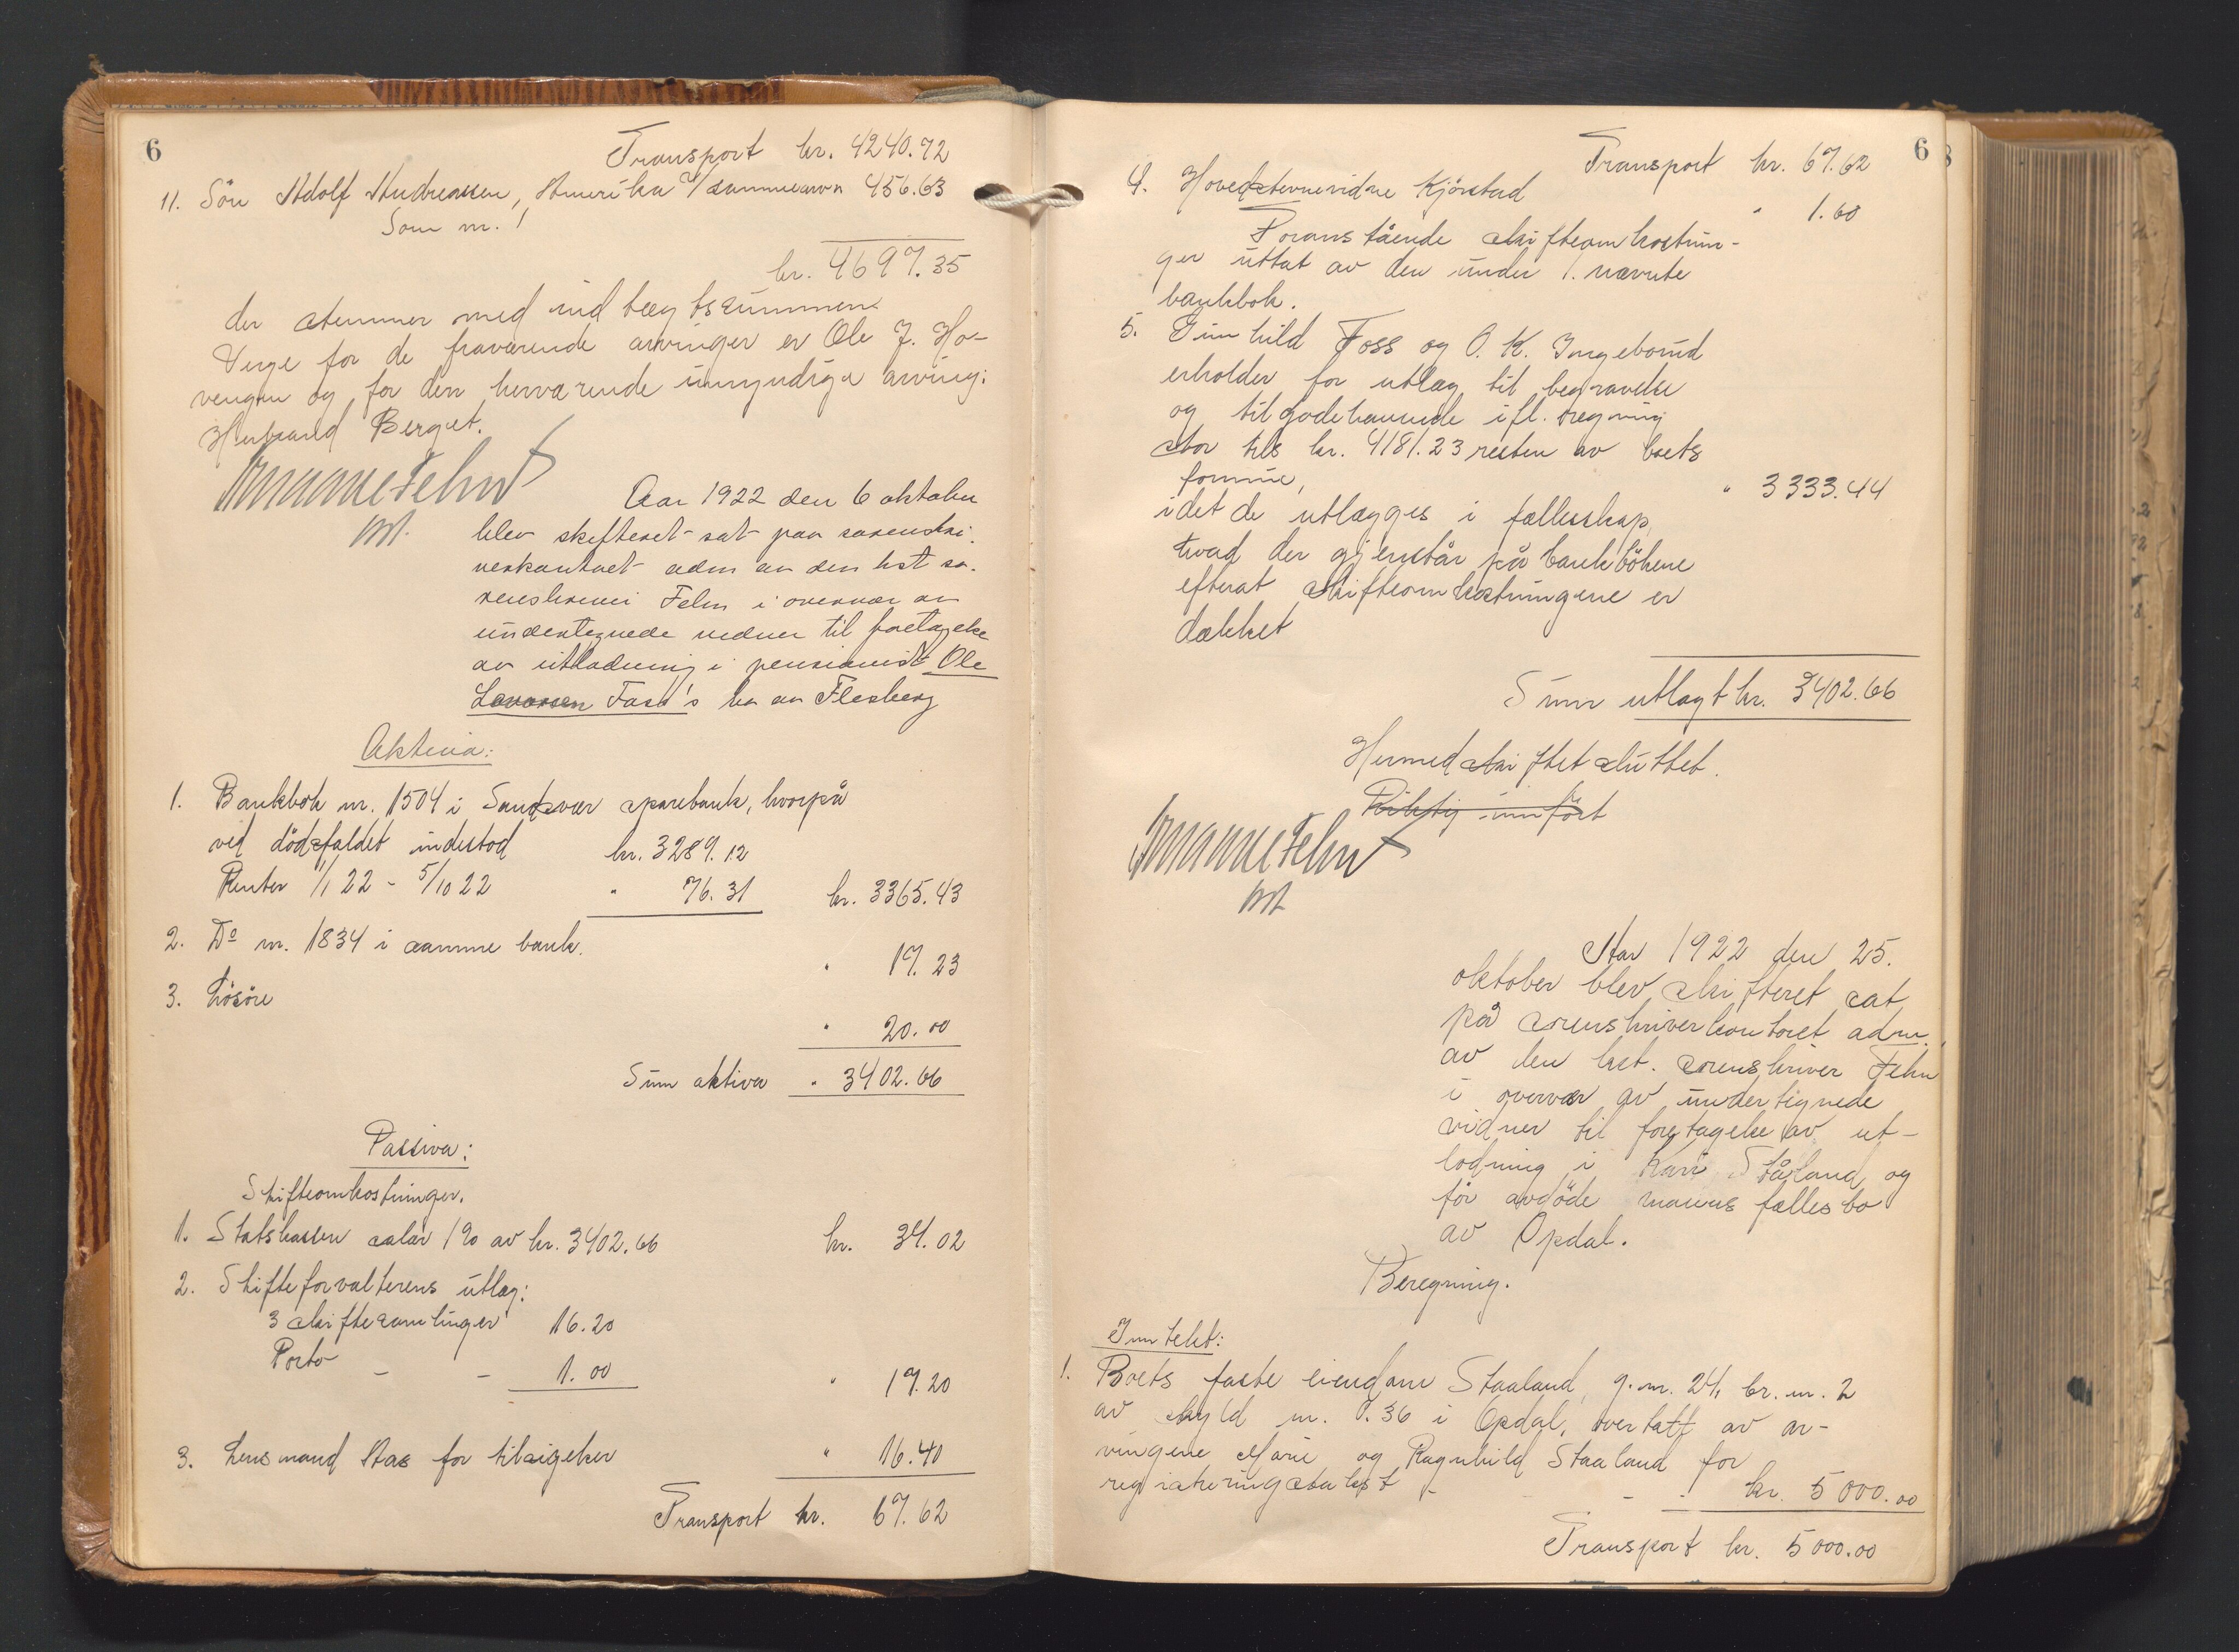 6
Transport kr. 4240.72
11. Sön Adolf Andreassen, Amerika 456.63
Som nr. 1
kr. 4697.35
der stemmer med indtægtssummen.
Verge for de fraværende arvinger er Ole J. Ho-
vengen og for den herværende umyndige arving:
Herbrand Berget.
Aar 1922 den 6 oktober
blev skifteret sat paa sorenskri-
verkontoret adm av den kst so-
renskriver Fehn i overvær av
undertegnede vidner til foretagelse
av utlodning i pensionist Ole
Larsen Foss's bo av Flesberg
Aktiva:
1. Bankbok nr. 1504 i Sandsvær sparebank, hvorpå
ved dödsfaldet indestod kr. 3289.12
Renter 1/1 22 - 5/10 22 " 76.31 kr. 3365.43
2. Do nr. 1834 i samme bank. " 17.23
3. Lösöre " 20.00
Sum aktiva " 3402.66
Passiva:
Skifteomkostninger.
1. Statskassen salær 1% av kr. 3402.66 kr. 34.02
2. Skifteforvalterens utlæg:
3 skiftesamlinger 16.20
Porto - - 1.00 " 17.20
3. Lensmand Aas for tilsigelser " 16.40
Transport kr. 67.62
6
Transport kr. 67.62
4. Hovedstevnevidne Kjörstad " 1.60
Foranstående skifteomkostnin-
ger uttat av den under 1. nævnte
bankbok.
5. Gunhild Foss og O. K. Ingeborud
erholder for utlæg til begravelse
og tilgodehavende ifl. regning
stor tils kr. 4181.23 resten av boets
formue, " 3333.44
idet de utlægges i fællesskap,
hvad der gjenstår på bankbökene
efterat skifteomkostningene er
dækket
Sum utlagt kr. 3402.66
Hermed skiftet sluttet.
Riktig innfört
Aar 1922 den 25.
oktober blev skifteret sat
på sorenskriverkontoret adm.
av den kst. sorenskriver Fehn
i overvær av undertegnede
vidner til foretagelse av ut-
lodning i Kari Ståland og
för avdöde manns fællesbo
av Opdal.
Beregning.
Inntekt:
1. Boets faste eiendom Staaland, g.nr. 24, br. nr. 2
av skyld m. 0.36 i Opdal, overtatt av ar-
vingene Marie og Ragnhild Staaland for
registreringstakst - - - kr. 5000.00
Transport kr. 5000.00